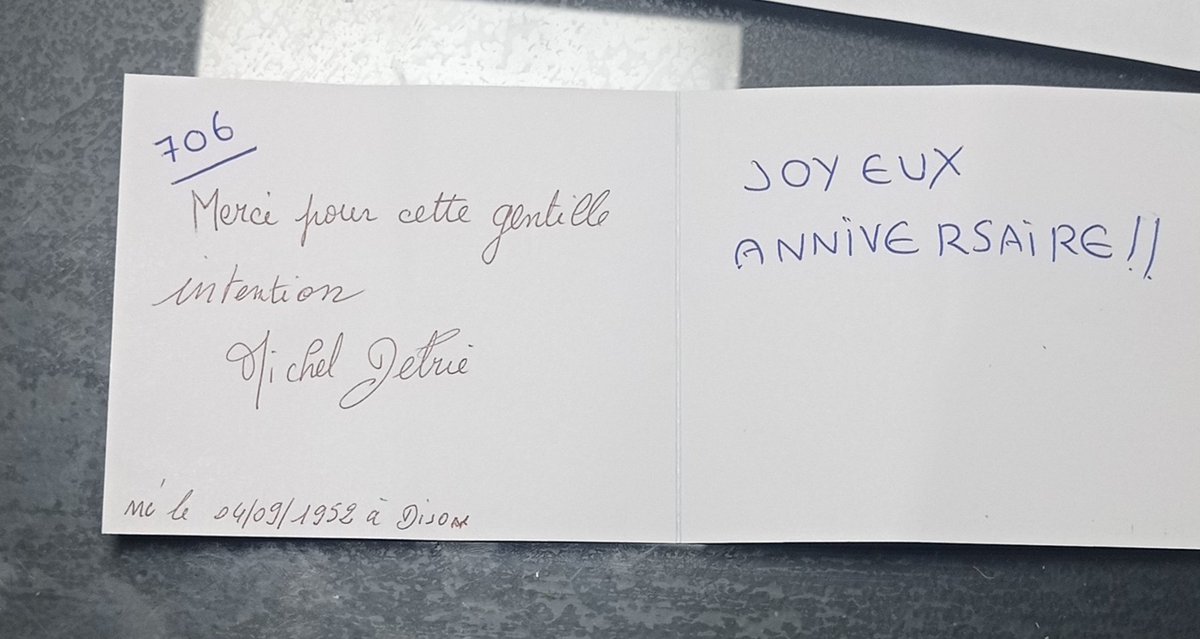 706
Merci pour cette gentille
intention
Michel Detrie
né le 04/09/1952 à Dison
JOYEUX
ANNIVERSAIRE!!